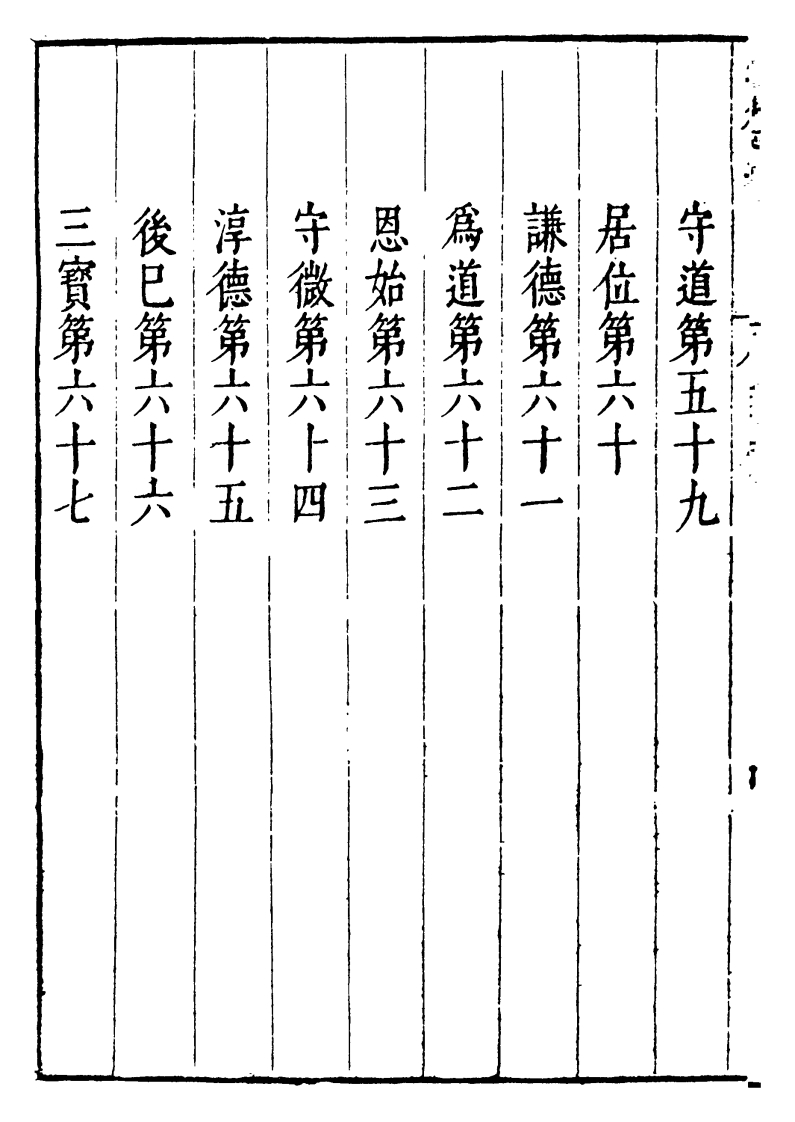 守道第五十九
居位第六十
謙德第六十一
爲道第六十二
恩始第六十三
守微第六十四
淳德第六十五
後巳第六十六
三寶第六十七